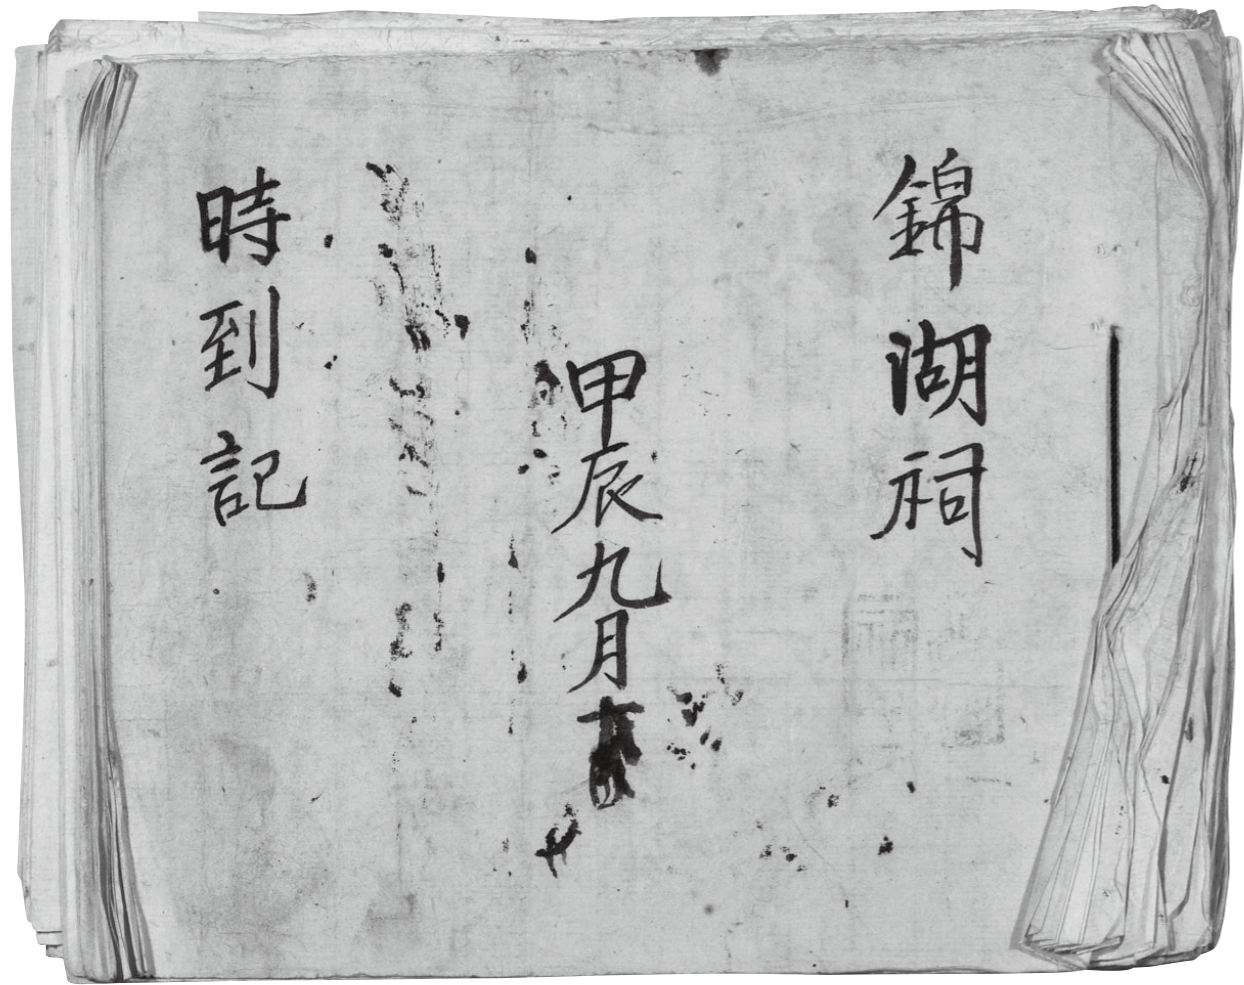 錦湖祠
甲辰九月
時到記